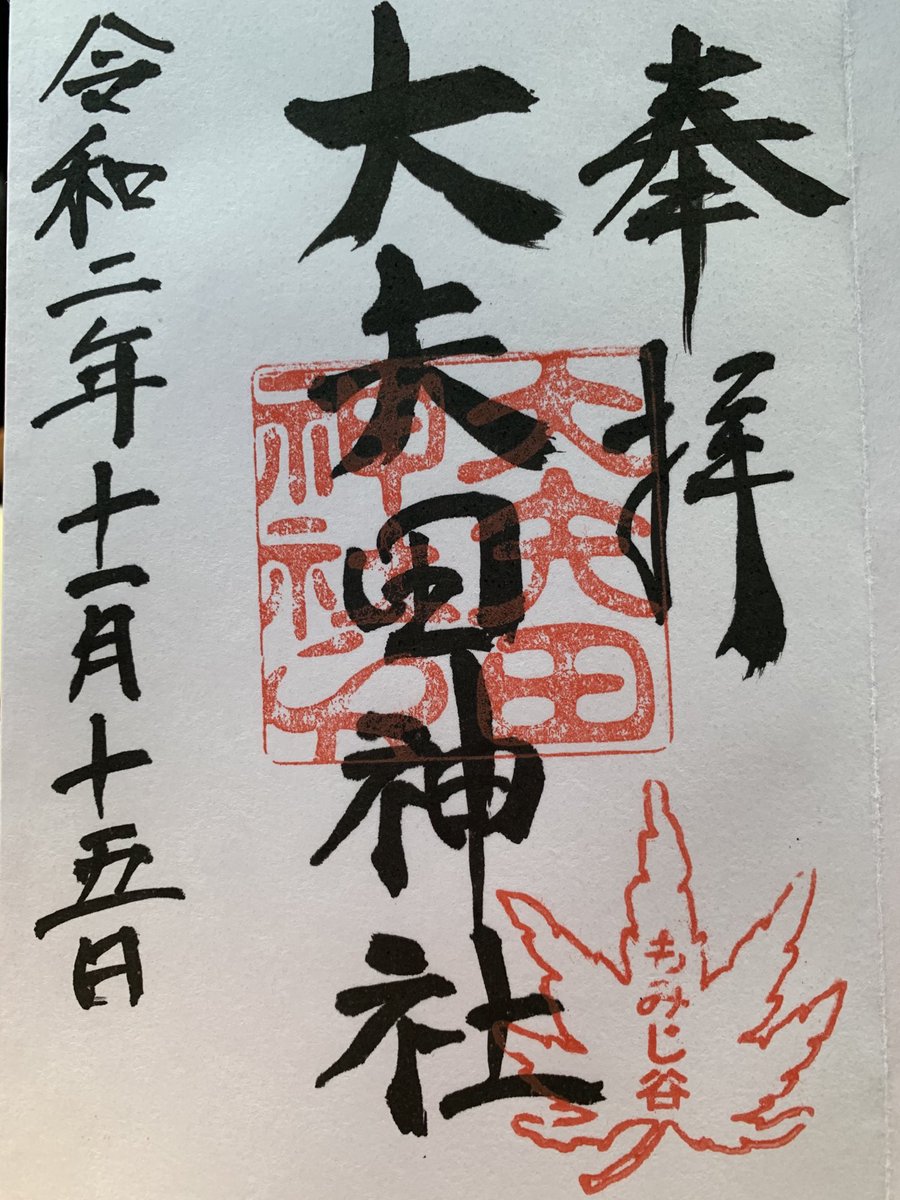 奉拝
大矢田神社
令和二年十一月十五日
大矢田
神社印
もみじ谷